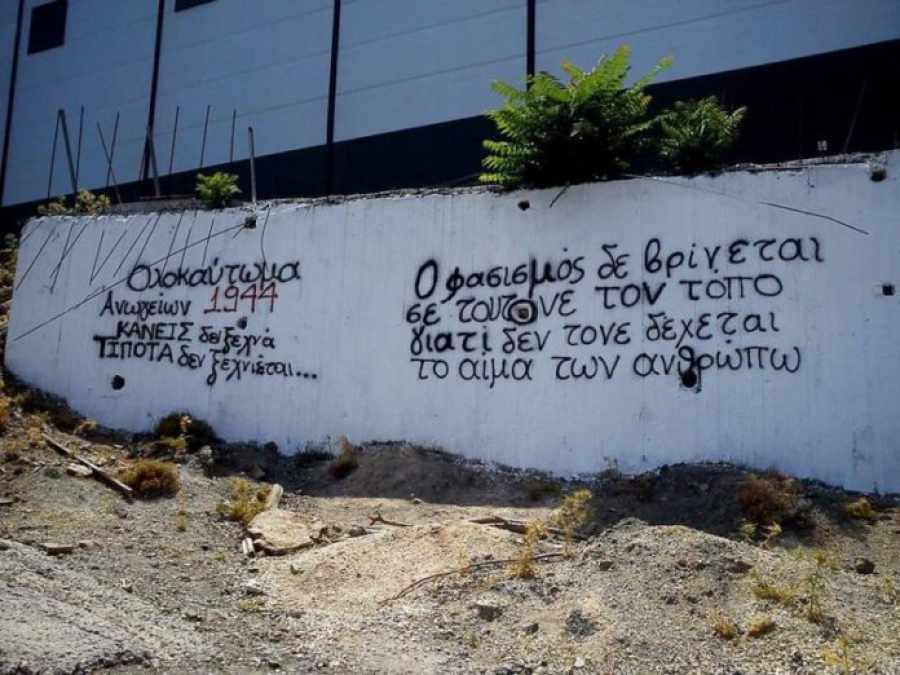 Ολοκαύτωμα
Ανωγείων 1944
ΚΑΝΕΙΣ δε ξεχνά
ΤΙΠΟΤΑ δεν ξεχνιέται...
Ο φασισμός δε βρίνεται
σε τουτονε τον τόπο
γιατί δεν τονε δέχεται
το αίμα των ανθρώπω